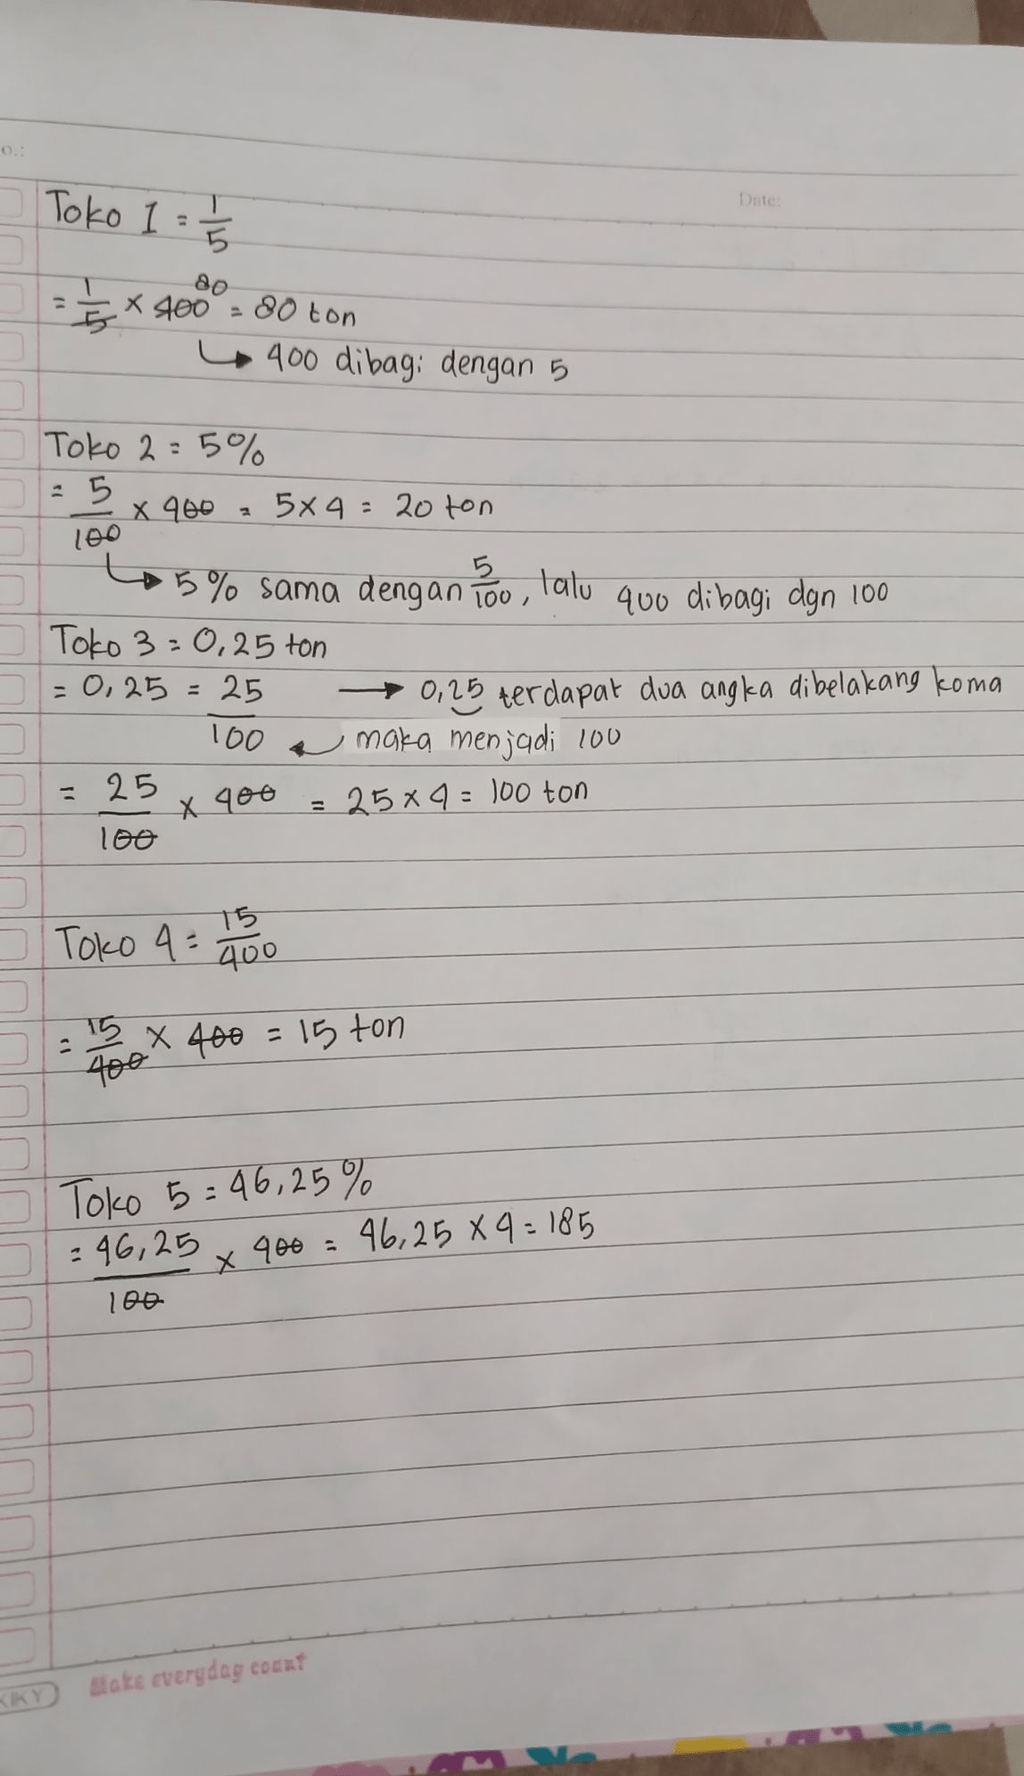 o.:
Date:
Toko 1 = 1/5
= 1/5 x 400 80 = 80 ton
↳ 400 dibagi dengan 5
Toko 2 = 5%
= 5/100 x 400 = 5x4 = 20 ton
↳ 5% sama dengan 5/100, lalu 400 dibagi dgn 100
Toko 3 = 0,25 ton
= 0,25 = 25/100 → 0,25 terdapat dua angka dibelakang koma
maka menjadi 100
= 25/100 x 400 = 25x4 = 100 ton
Toko 4 = 15/400
= 15/400 x 400 = 15 ton
Toko 5 = 46,25%
= 46,25/100 x 400 = 46,25 x 4 = 185
Make everyday count
KIKY